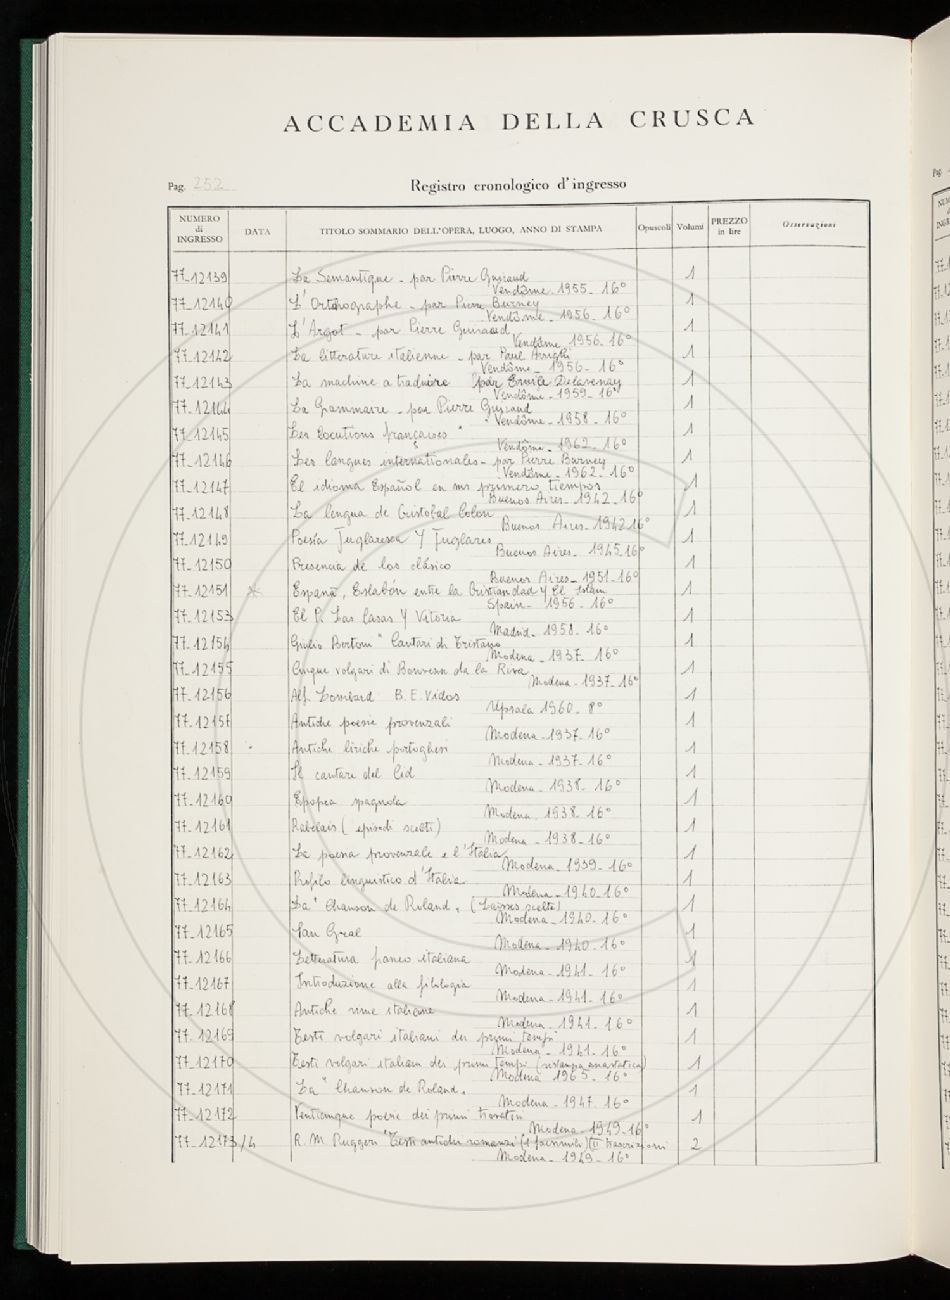 ACCADEMIA DELLA CRUSCA
Pag. 252
Registro cronologico d'ingresso
NUMERO di INGRESSO DATA TITOLO SOMMARIO DELL'OPERA, LUOGO, ANNO DI STAMPA Opuscoli Volumi PREZZO in lire Osservazioni
77-12139 La Semantique - par Pierre Guiraud 1
Vendôme - 1955 - 16°
77-12140 L'Orthographe - par Pierre Burney 1
Vendôme - 1956 - 16°
77-12141 L'Argot - par Pierre Guiraud 1
Vendôme 1956 - 16°
77-12142 La litterature italienne - par Paul Arrighi 1
Vendôme - 1956 - 16°
77-12143 La machine a traduire par Emile Delavenay 1
Vendôme - 1959 - 16°
77-12144 La Grammaire - par Pierre Guiraud 1
Vendôme - 1958 - 16°
77-12145 Les locutions françaises " 1
Vendôme - 1962 - 16°
77-12146 Les langues internationales - par Pierre Burney 1
Vendôme - 1962 - 16°
77-12147 El idioma Español en sus primero tiempos 1
Buenos Aires - 1942 - 16°
77-12148 La lengua de Cristobal Colon 1
Buenos Aires - 1942 16°
77-12149 Poesía Juglaresca Y Juglares 1
Buenos Aires - 1945 16°
77-12150 Presencia de los clásico 1
Buenos Aires - 1951 - 16°
77-12151 * España, Eslabón entre la Cristiandad y El Islam 1
Spain - 1956 - 16°
77-12153 El P. Las Casas Y Vitoria 1
Madrid - 1958 - 16°
77-12154 Giulio Bertoni " Cantari di Tristano 1
Modena - 1937 - 16°
77-12155 Cinque volgari di Bonvesin da la Riva 1
Modena - 1937 - 16°
77-12156 Alf. Lombard B. E. Vidos 1
Upsala 1960 - 8°
77-12157 Antiche poesie provenzali 1
Modena - 1937 - 16°
77-12158 Antiche liriche portoghesi 1
Modena - 1937 - 16°
77-12159 Il cantare del Cid 1
Modena - 1938 - 16°
77-12160 Epopea spagnola 1
Modena 1938 - 16°
77-12161 Rabelais ( episodi scelti) 1
Modena - 1938 - 16°
77-12162 La poesia provenzale e l'Italia 1
Modena - 1939 - 16°
77-12163 Profilo linguistico d'Italia 1
Modena - 1940 - 16°
77-12164 La " Chanson de Roland " (Laisses scelte) 1
Modena - 1940 - 16°
77-12165 San Gral 1
Modena - 1940 - 16°
77-12166 Letteratura franco italiana 1
Modena - 1941 - 16°
77-12167 Introduzione alla filologia 1
Modena - 1941 - 16°
77-12168 Antiche rime italiane 1
Modena - 1941 - 16°
77-12169 Testi volgari italiani dei primi tempi 1
Modena - 1941 - 16°
77-12170 Testi volgari italiani dei primi tempi (ristampa anastatica) 1
Modena 1965 - 16°
77-12171 La " Chanson de Roland " 1
Modena - 1947 - 16°
77-12172 Venticinque poesie dei primi trovatori 1
Modena - 1949 - 16°
77-12173/4 R. M. Ruggeri "Testi antichi romanzi (I facsimili) (II trascrizioni 2
Modena - 1949 - 16°